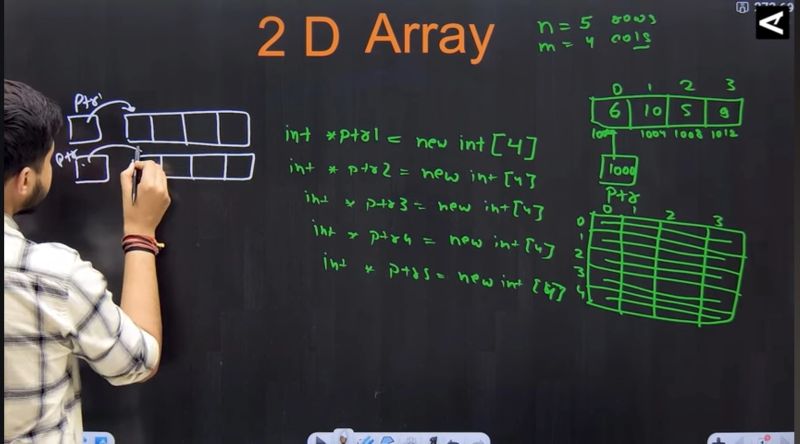 2 D Array
n = 5 rows
m = 4 cols
ptr1
ptr
int *ptr1 = new int [4]
int * ptr2 = new int [4]
int * ptr3 = new int [4]
int * ptr4 = new int [4]
int * ptr5 = new int [4]
0 1 2 3
6 10 5 9
1000 1004 1008 1012
1000
ptr
0 1 2 3
0
1
2
3
4